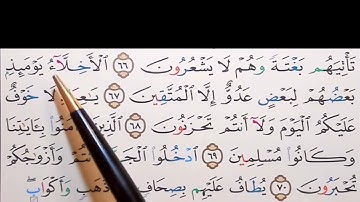 تَأْتِيَهُم بَغْتَةً وَهُمْ لَا يَشْعُرُونَ ٦٦ الْأَخِلَّآءُ يَوْمَئِذٍ
بَعْضُهُمْ لِبَعْضٍ عَدُوٌّ إِلَّا الْمُتَّقِينَ ٦٧ خَوْفٌ
عَلَيْكُمُ الْيَوْمَ وَلَآ أَنتُمْ تَحْزَنُونَ ٦٨ بِـَٔايَٰتِنَا
وَكَانُوا۟ مُسْلِمِينَ ٦٩ ادْخُلُوا۟ وَأَزْوَٰجُكُمْ
تُحْبَرُونَ ٧٠ يُطَافُ عَلَيْهِم بِصِحَافٍ ذَهَبٍ وَأَكْوَابٍ